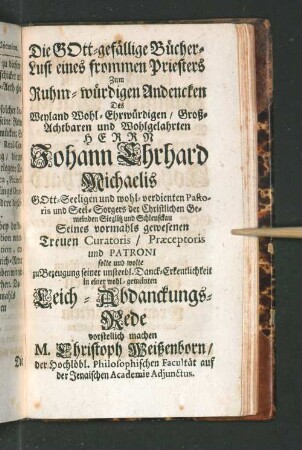 Die GOtt-gefällige Bücher-
Lust eines frommen Priesters
Zum
Ruhm-würdigen Andencken
Des
Weyland Wohl-Ehrwürdigen / Groß-
Achtbaren und Wohlgelahrten
HERRN
Johann Ehrhard
Michaelis
GOtt-Seeligen und wohl-verdienten Pasto-
ris und Seel-Sorgers der Christlichen Ge-
meinden Sieglitz und
Seines vormahls gewesenen
Treuen Curatoris / Præceptoris
und PATRONI
solte und wolte
zu Bezeugung seiner unsterbl. Danck-Erkentlichkeit
in einer wohl-gemeinten
Leich-Abdanckungs-
Rede
vorstellich machen
M. Christoph Weißenborn /
der Hochlöbl. Philosophischen Facultät auf
der Jenaischen Academie Adjunctus.
Die